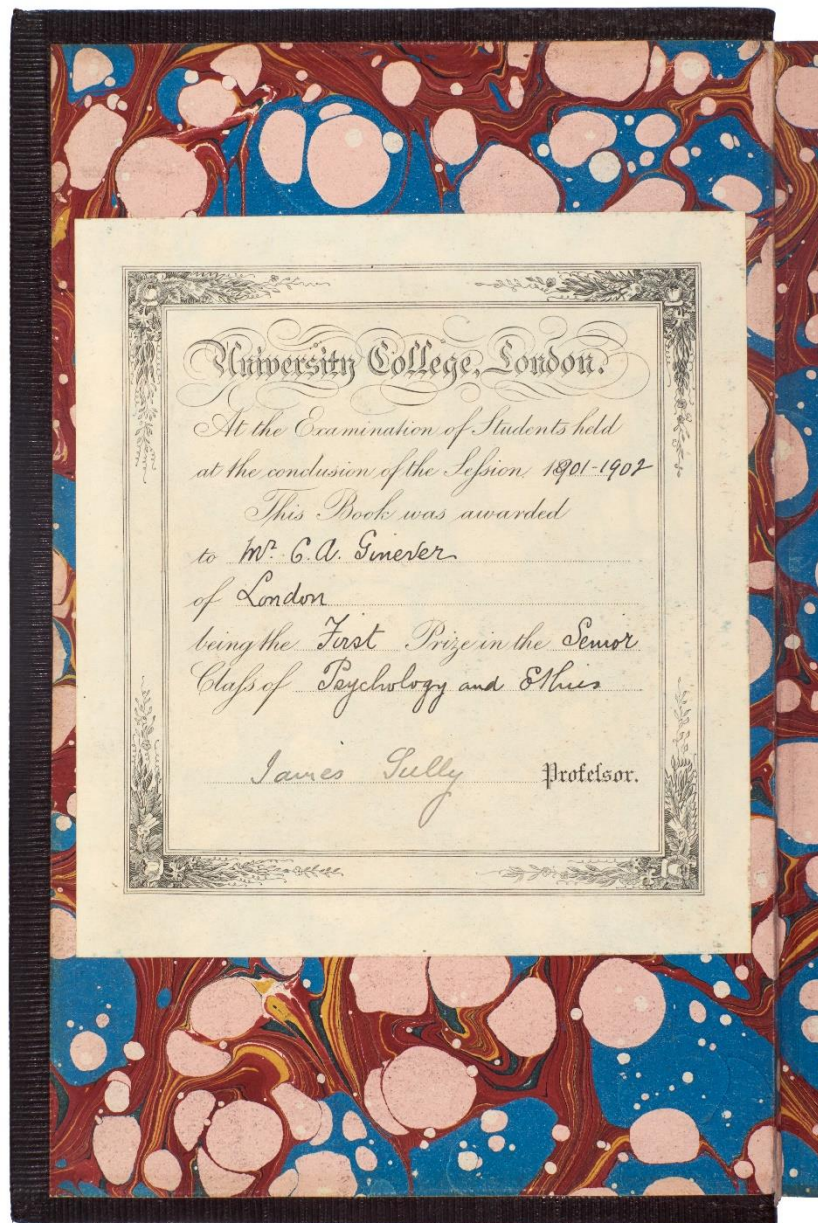 University College, London.
At the Examination of Students held
at the conclusion of the Seſsion 1901-1902
This Book was awarded
to Mr. C. A. Ginever
of London
being the First Prize in the Senior
Claſs of Psychology and Ethics
James Sully Profeſsor.